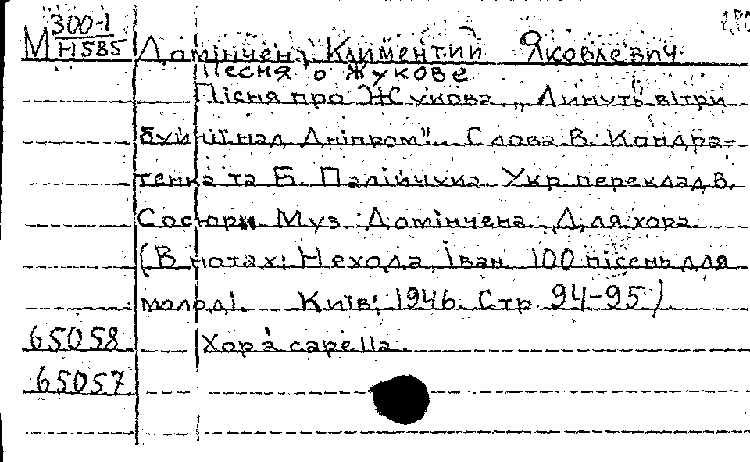 М 300-1
Н585
Домінчен, Климентий Яковлевич.
Песня о Жукове
Пісня про Жукова „Линуть вітри
буйнії над Дніпром". Слова В. Кондра-
тенка та Б. Палійчука. Укр. переклад В.
Сосюри. Муз. Домінчена. Для хора.
(В нотах: Нехода, Іван. 100 пісень для
молоді. Київ, 1946. Стр. 94-95)
65058 Хор a capella.
65057